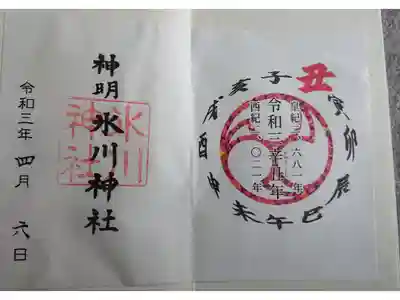 神明氷川神社
氷川
神社
令和三年 四月 六日
皇紀二、六八一年
令和三辛丑年
西紀二、〇二一年
子
丑
寅
卯
辰
巳
午
未
申
酉
戌
亥